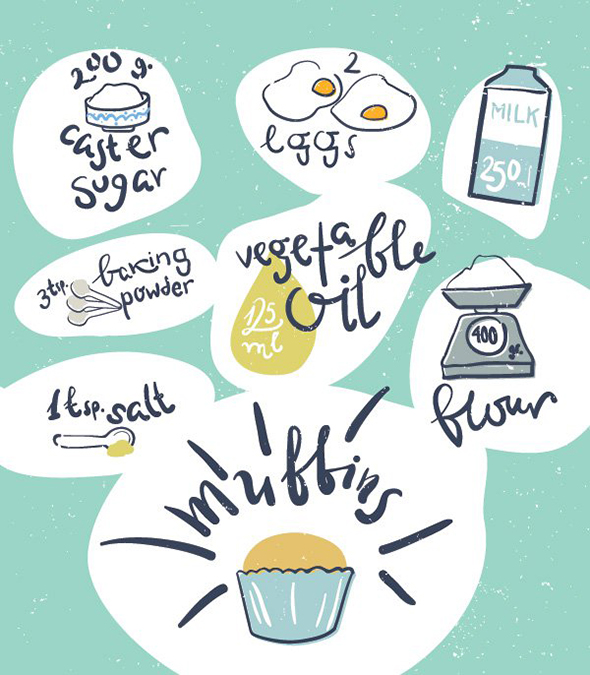 200 g.
caster
sugar
2
eggs
MILK
250 ml
3 tsp. baking
powder
vegetable
oil
125
ml
400
gr.
flour
1 tsp. salt
muffins